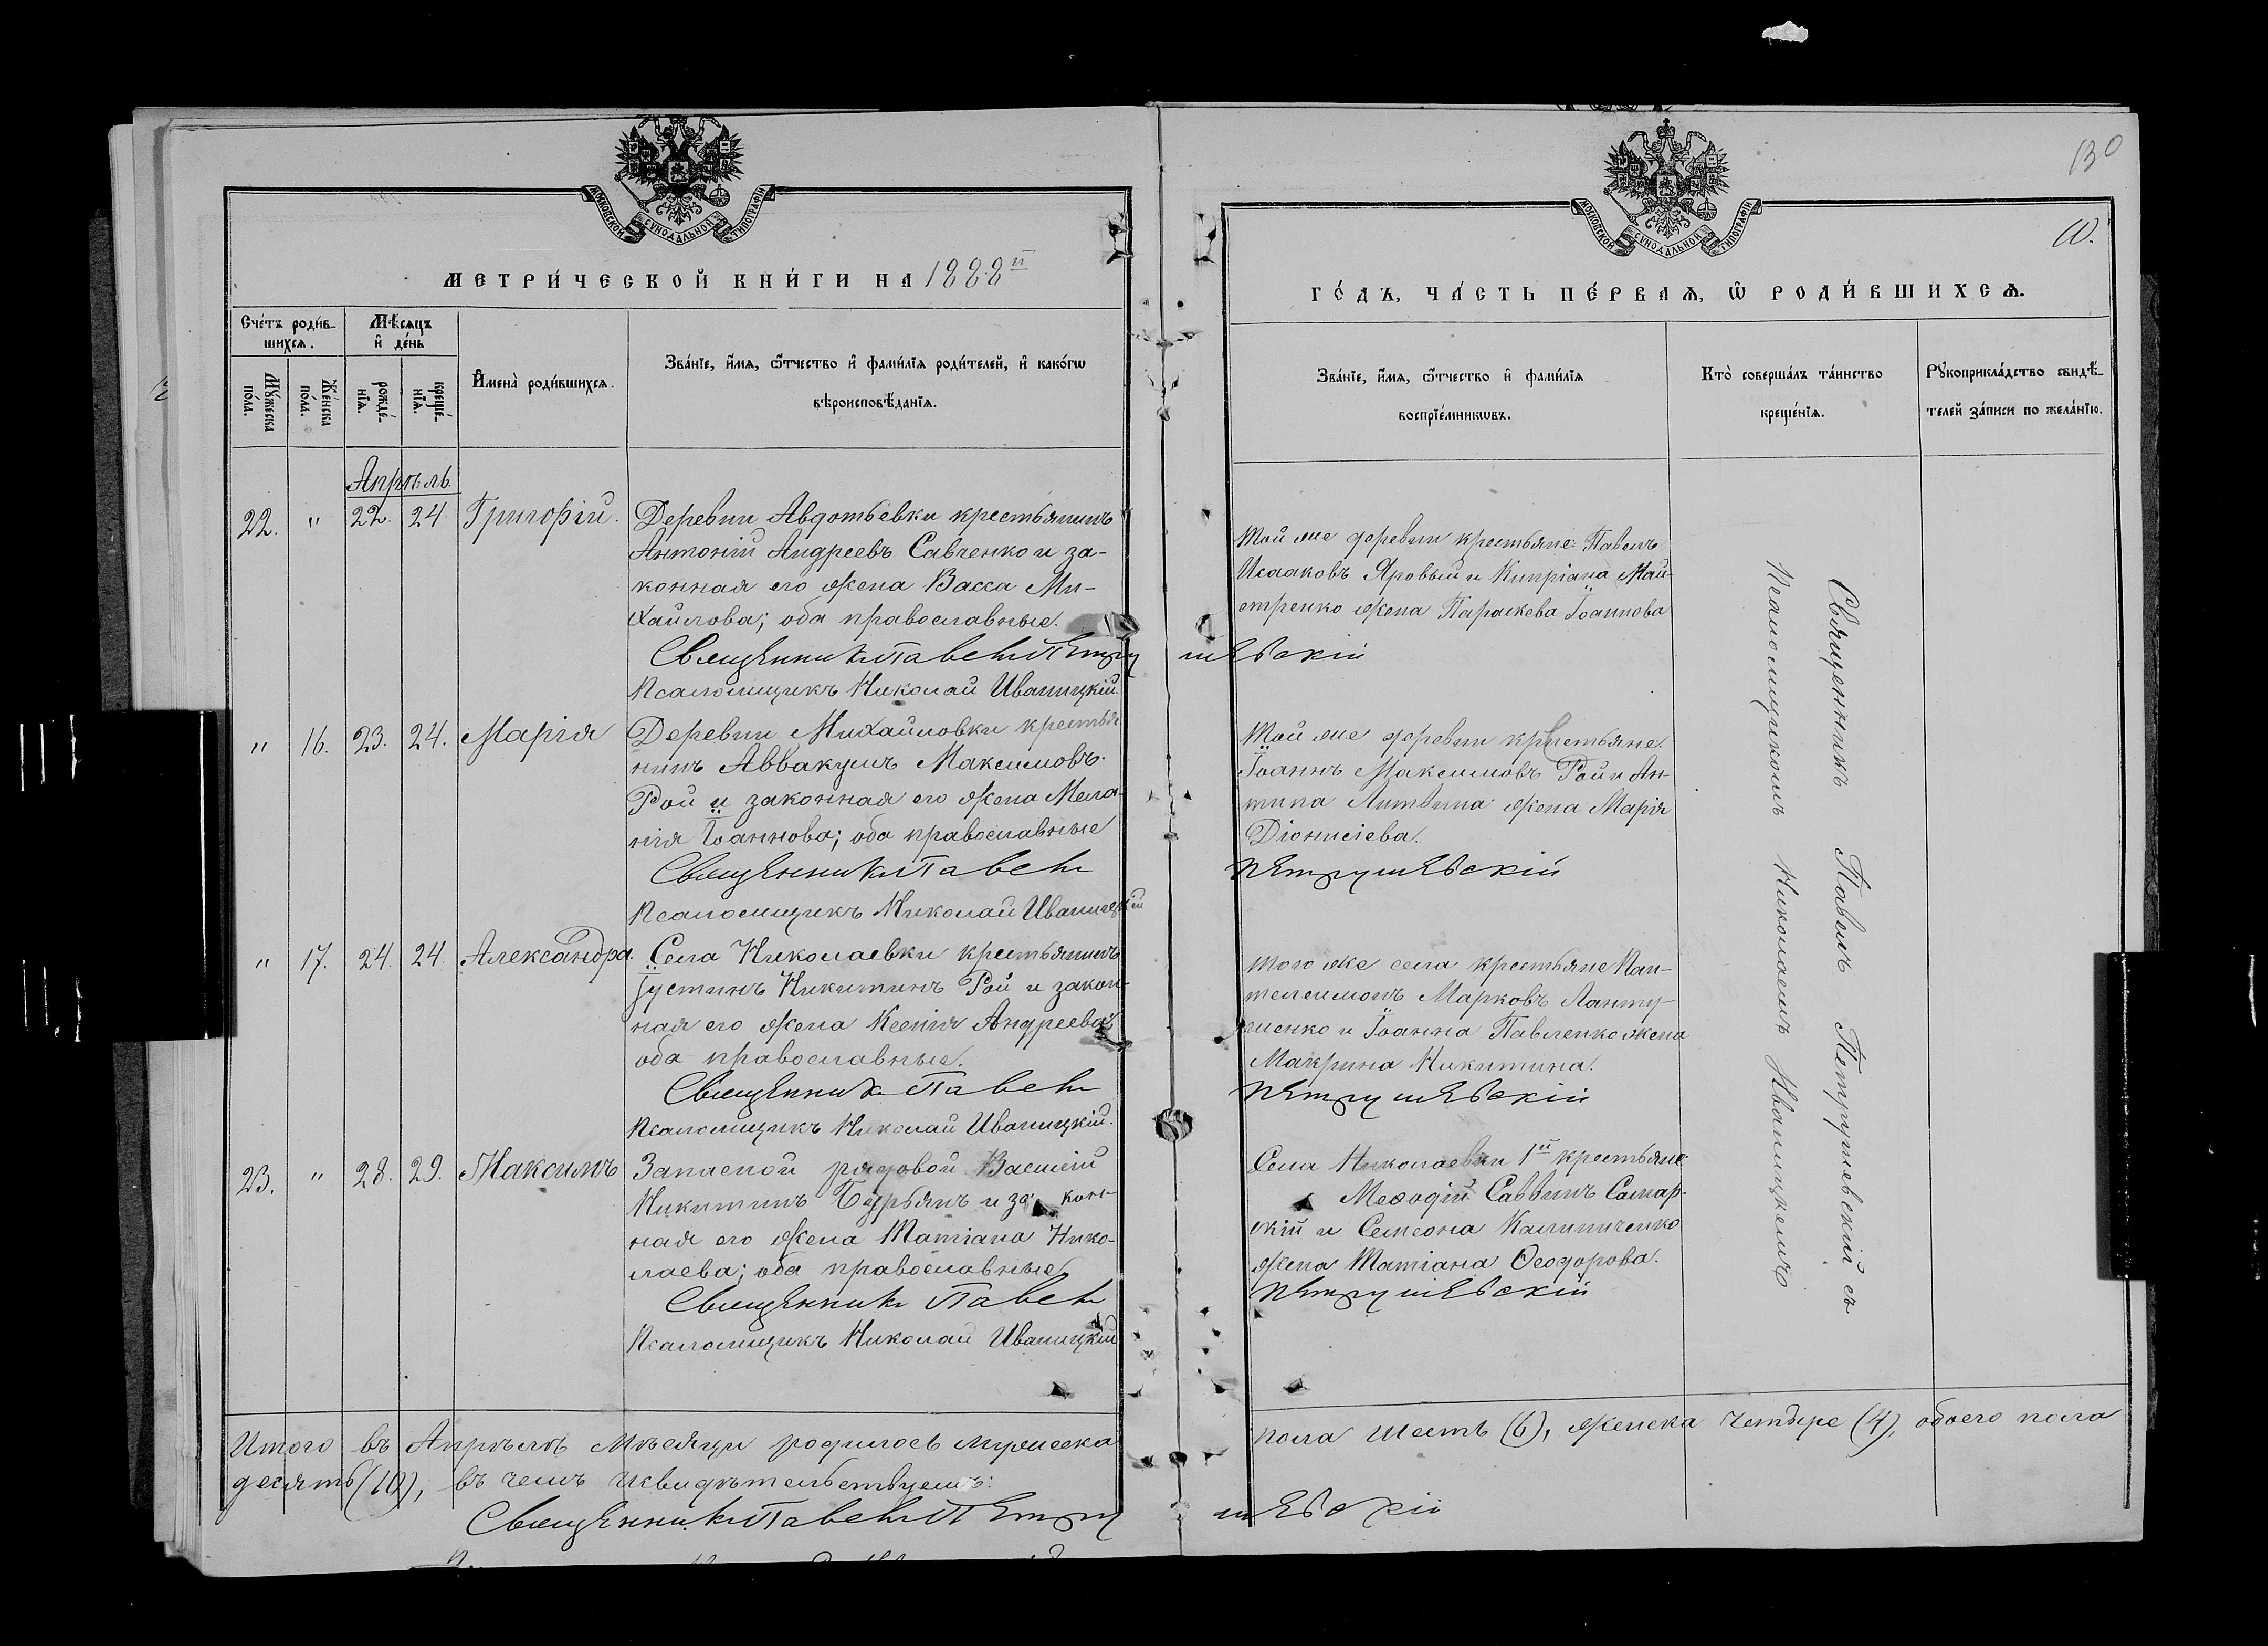 130
10.
МОСКОВСКОЙ СѴНОДАЛЬНОЙ ТИПОГРАФІИ
МОСКОВСКОЙ СѴНОДАЛЬНОЙ ТИПОГРАФІИ
МЕТРИ́ЧЕСКОЙ КНИ́ГИ НА 1888й
ГО́ДЪ, ЧА́СТЬ ПЕ́РВАѦ, Ѡ РОДИ́ВШИХСѦ.
Сче́тъ роди́в-
шихсѧ.
Мѣ́сѧцъ
и҆ де́нь
Мꙋ́жеска
по́ла.
Же́нска
по́ла.
рожде́-
нїѧ.
креще́-
нїѧ.
И҆мена̀ роди́вшихсѧ.
Зва́нїе, и҆́мѧ, ѻ҆́тчество и҆ фами́лїѧ роди́телей, и҆ како́гѡ
вѣроисповѣ́данїѧ.
Зва́нїе, и҆́мѧ, ѻ҆́тчество и҆ фами́лїѧ
воспрїе́мникѡвъ.
Кто̀ соверша́лъ та́инство
креще́нїѧ.
Рꙋкоприкла́дство свидѣ́-
телей за́писи по жела́нїю.
Апрѣль
22. " 22. 24 Григорій. Деревни Авдотьевки крестьянинъ
Антоній Андреевъ Савченко и за-
конная его жена Васса Ми-
хайлова; оба православные.
Священникъ Павелъ Петру
Псаломщикъ Николай Иваницкій
Той же деревни крестьяне: Павелъ
Исааковъ Яровый и Кипріана Май-
стренко жена Параскева Іоаннова
шевскій
" 16. 23. 24. Марія Деревни Михайловки крестья
нинъ Аввакумъ Максимовъ
Рой и законная его жена Мела-
нія Іоаннова; оба православные
Священникъ Павелъ
Псаломщикъ Николай Иваницкій
Той же деревни крестьяне
Іоаннъ Максимовъ Рой и Ан-
типа Литвина жена Марія
Діонисіева.
Петрушевскій
" 17. 24 24. Александра. Села Николаевки крестьянинъ
Іустинъ Никитинъ Рой и закон-
ная его жена Ксенія Андреева;
оба православные.
Священникъ Павелъ
Псаломщикъ Николай Иваницкій.
Того же села крестьяне Пан-
телеимонъ Марковъ Ланту-
шенко и Іоанна Павленко жена
Макрина Никитина.
Петрушевскій
23. " 28. 29. Максимъ Запасной рядовой Василій
Никитинъ Бурьянъ и за кон-
ная его жена Татіана Нико-
лаева; оба православные
Священникъ Павелъ
Псаломщикъ Николай Иваницкій
Села Николаевки 1й крестьяне
Меѳодій Саввинъ Самар-
скій и Семеона Калиниченко
жена Татіана Ѳеодорова.
Петрушевскій
Священникъ Павелъ Петрушевскій съ
Псаломщикомъ Николаемъ Иваницкимъ
Итого въ Апрѣлѣ мѣсяцѣ родилось мужеска
пола шесть (6), женска четыре (4), обоего пола
десять (10), въ чемъ и свидѣтельствуемъ:
Священникъ Павелъ Петру
шевскій